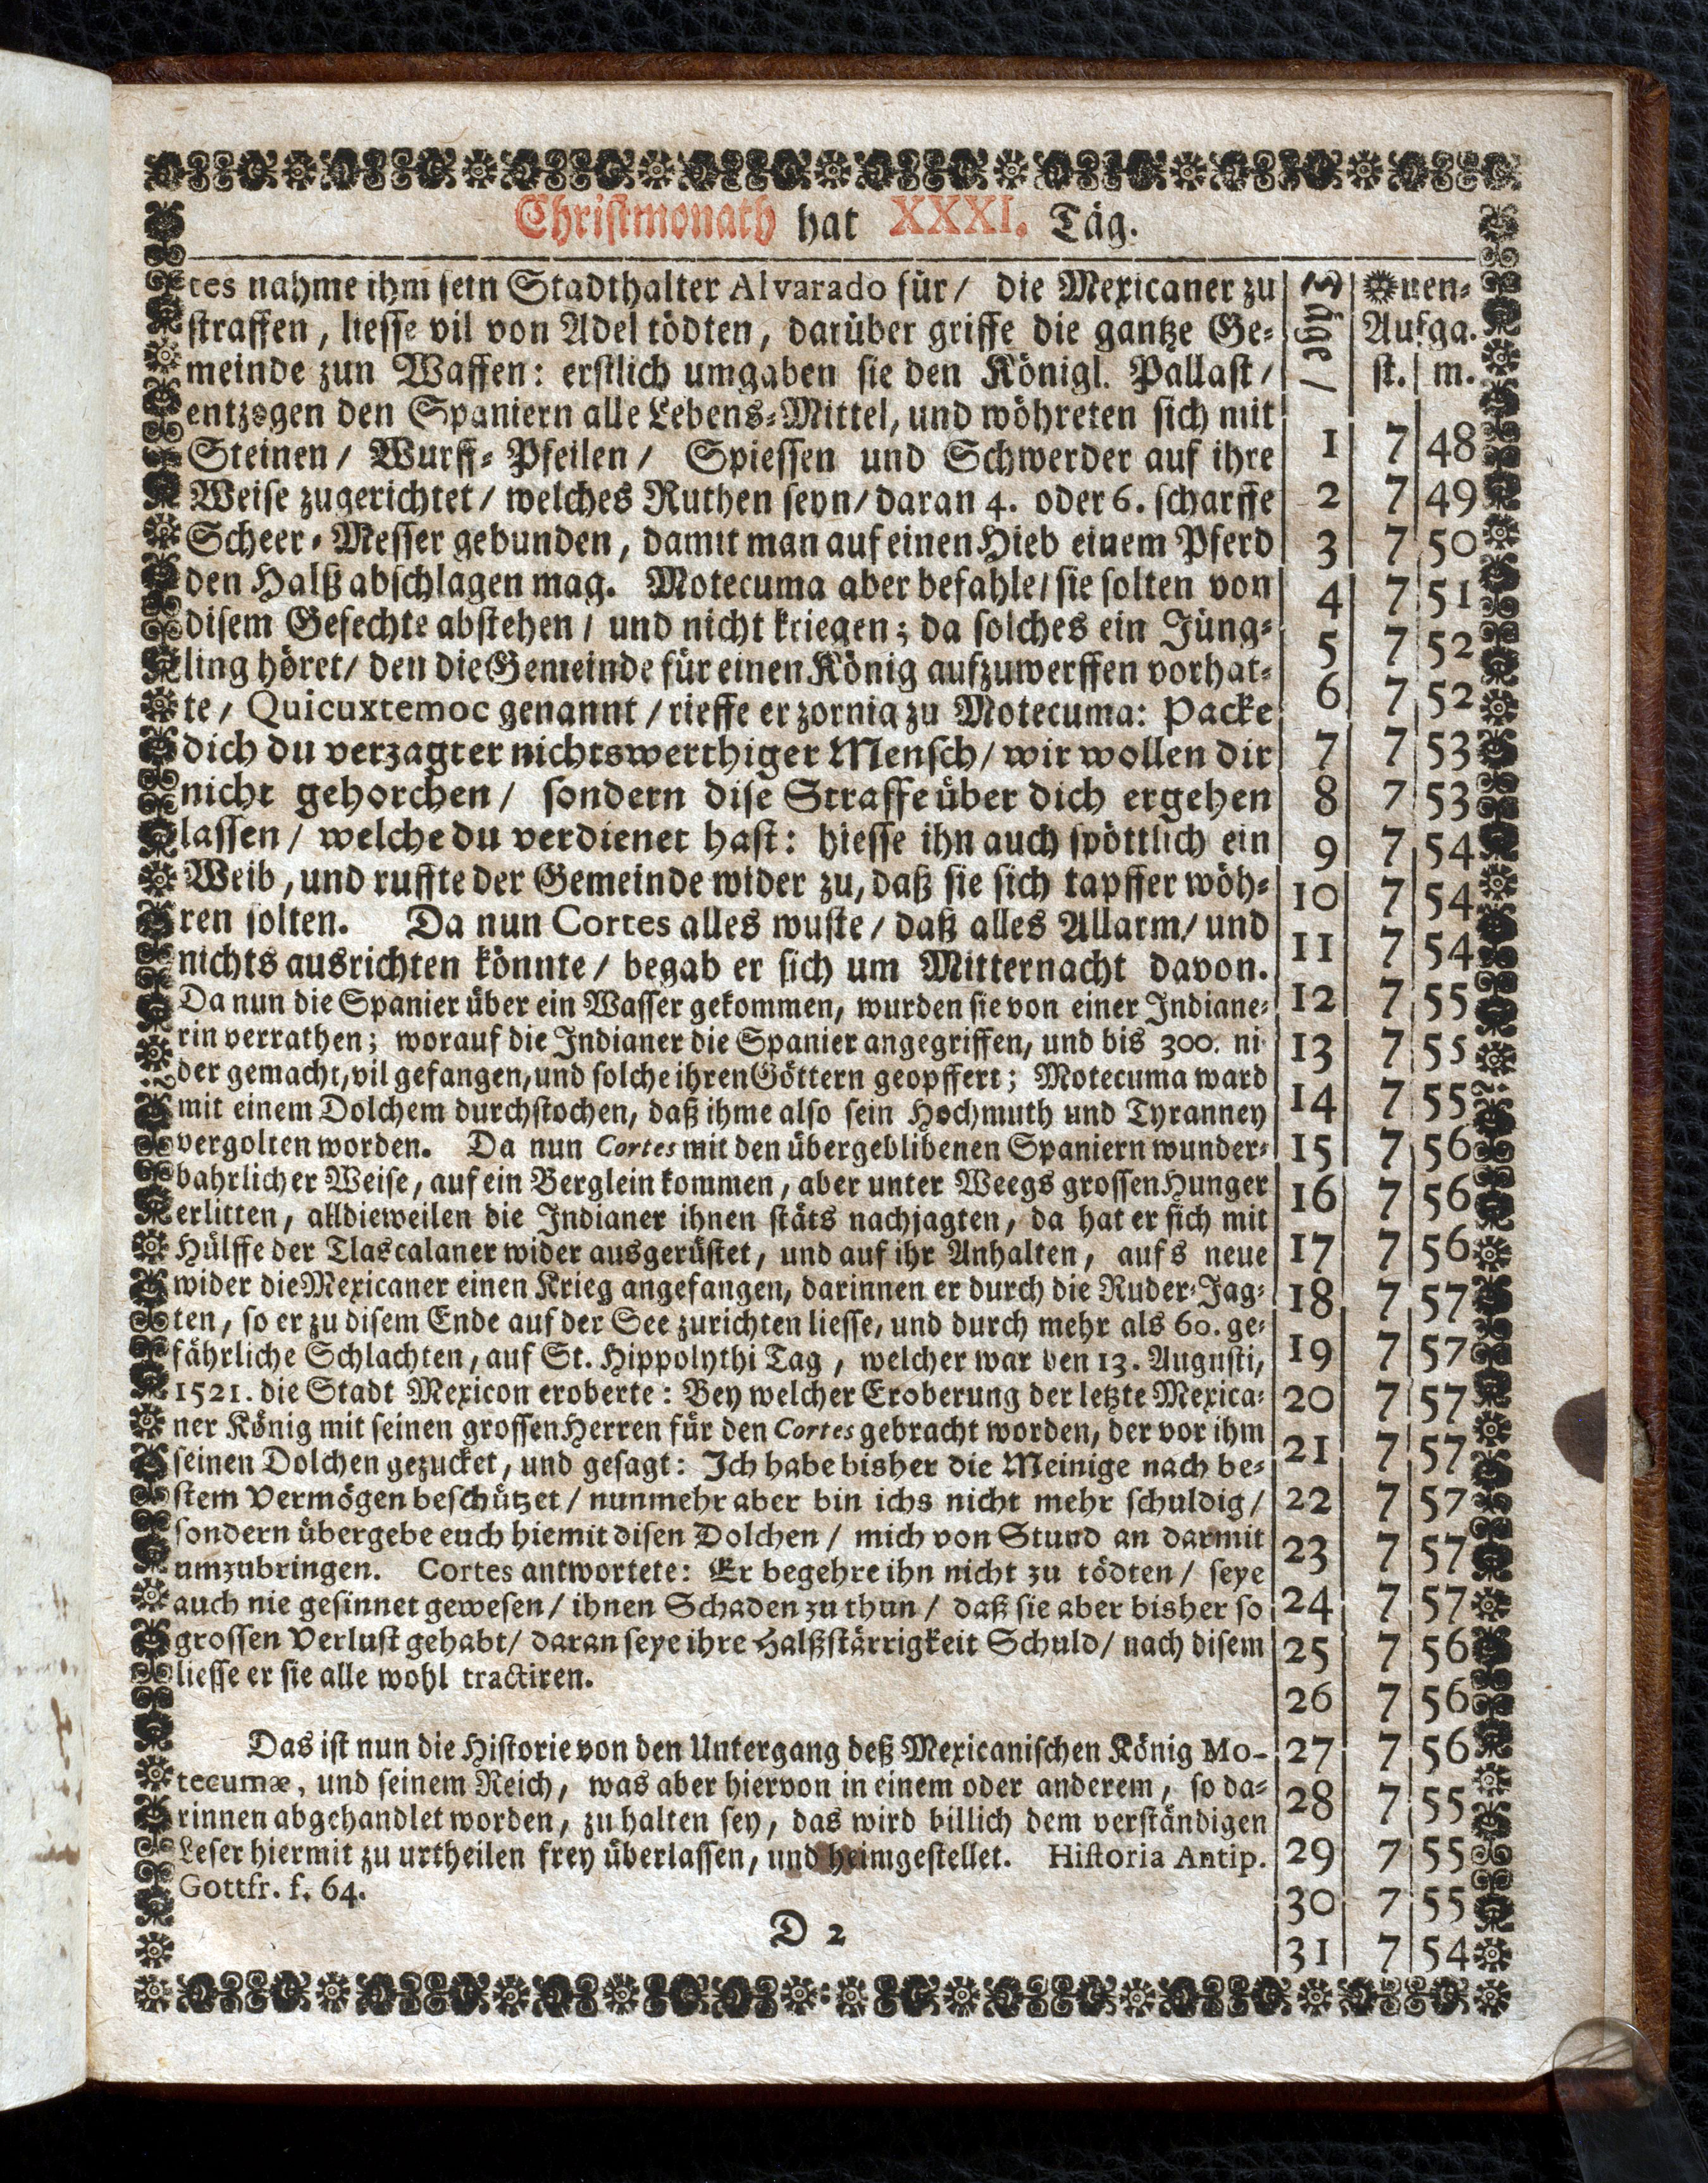 Christmonath hat XXXI. Täg.
tes nahme ihm sein Stadthalter Alvarado für / die Mexicaner zu
straffen, liesse vil von Adel tödten, darüber griffe die gantze Ge-
meinde zun Waffen: erstlich umgaben sie den Königl. Pallast /
entzogen den Spaniern alle Lebens-Mittel, und wöhreten sich mit
Steinen / Wurff-Pfeilen / Spiessen und Schwerder auf ihre
Weise zugerichtet / welches Ruthen seyn / daran 4. oder 6. scharffe
Scheer-Messer gebunden, damit man auf einen Hieb einem Pferd
den Halß abschlagen mag. Motecuma aber befahle / sie solten von
disem Gefechte abstehen / und nicht kriegen; da solches ein Jüng-
ling höret / den die Gemeinde für einen König aufzuwerffen vorhat-
te / Quicuxtemoc genannt / rieffe er zornig zu Motecuma: Packe
dich du verzagter nichtswerthiger Mensch / wir wollen dir
nicht gehorchen / sondern dise Straffe über dich ergehen
lassen / welche du verdienet hast: hiesse ihn auch spöttlich ein
Weib, und ruffte der Gemeinde wider zu, daß sie sich tapffer wöh-
ren solten. Da nun Cortes alles wuste / daß alles Allarm / und
nichts ausrichten könnte / begab er sich um Mitternacht davon.
Da nun die Spanier über ein Wasser gekommen, wurden sie von einer Indiane-
rin verrathen; worauf die Indianer die Spanier angegriffen, und bis 300. ni-
der gemacht, vil gefangen, und solche ihren Göttern geopffert; Motecuma ward
mit einem Dolchem durchstochen, daß ihme also sein Hochmuth und Tyranney
vergolten worden. Da nun Cortes mit den übergeblibenen Spaniern wunder-
bahrlicher Weise, auf ein Berglein kommen, aber unter Weegs grossen Hunger
erlitten, alldieweilen die Indianer ihnen stäts nachjagten, da hat er sich mit
Hülffe der Tlascalaner wider ausgerüstet, und auf ihr Anhalten, aufs neue
wider die Mexicaner einen Krieg angefangen, darinnen er durch die Ruder-Jag-
ten, so er zu disem Ende auf der See zurichten liesse, und durch mehr als 60. ge-
fährliche Schlachten, auf St. Hippolythi Tag, welcher war den 13. Augusti,
1521. die Stadt Mexicon eroberte: Bey welcher Eroberung der letzte Mexica-
ner König mit seinen grossen Herren für den Cortes gebracht worden, der vor ihm
seinen Dolchen gezucket, und gesagt: Ich habe bisher die Meinige nach be-
stem Vermögen beschützet / nunmehr aber bin ichs nicht mehr schuldig /
sondern übergebe euch hiemit disen Dolchen / mich von Stund an darmit
umzubringen. Cortes antwortete: Er begehre ihn nicht zu tödten / seye
auch nie gesinnet gewesen / ihnen Schaden zu thun / daß sie aber bisher so
grossen Verlust gehabt / daran seye ihre Halßstärrigkeit Schuld / nach disem
liesse er sie alle wohl tractiren.
Das ist nun die Historie von den Untergang deß Mexicanischen König Mo-
tecumæ, und seinem Reich, was aber hiervon in einem oder anderem, so da-
rinnen abgehandlet worden, zu halten sey, das wird billich dem verständigen
Leser hiermit zu urtheilen frey überlassen, und heimgestellet. Historia Antip.
Gottfr. f. 64.
D 2
Täge /
nen-
Aufga.
st. m.
1 7 48
2 7 49
3 7 50
4 7 51
5 7 52
6 7 52
7 7 53
8 7 53
9 7 54
10 7 54
11 7 54
12 7 55
13 7 55
14 7 55
15 7 56
16 7 56
17 7 56
18 7 57
19 7 57
20 7 57
21 7 57
22 7 57
23 7 57
24 7 57
25 7 56
26 7 56
27 7 56
28 7 55
29 7 55
30 7 55
31 7 54